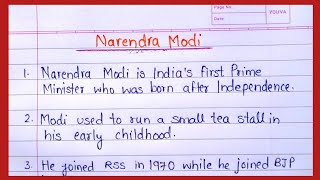 Page No.
Date
YOUVA
Narendra Modi
1. Narendra Modi is India's first Prime
Minister who was born after Independence.
2. Modi used to run a small tea stall in
his early childhood.
3. He joined RSS in 1970 while he joined BJP